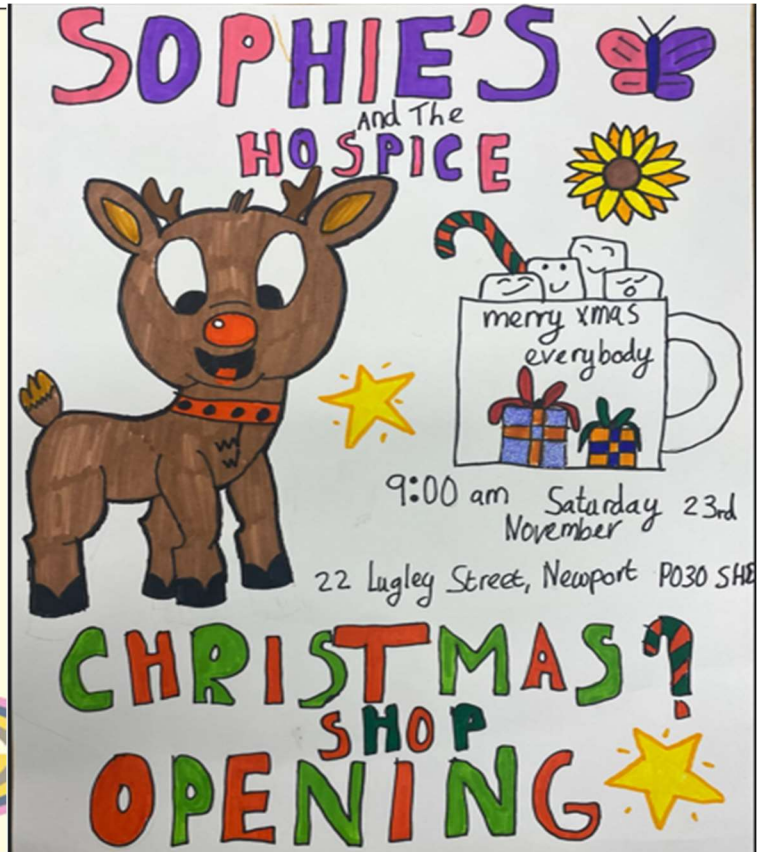 SOPHIE'S
And The
HOSPICE
merry xmas
everybody
9:00 am Saturday 23rd
November
22 Lugley Street, Newport PO30 5HE
CHRISTMAS
SHOP
OPENING